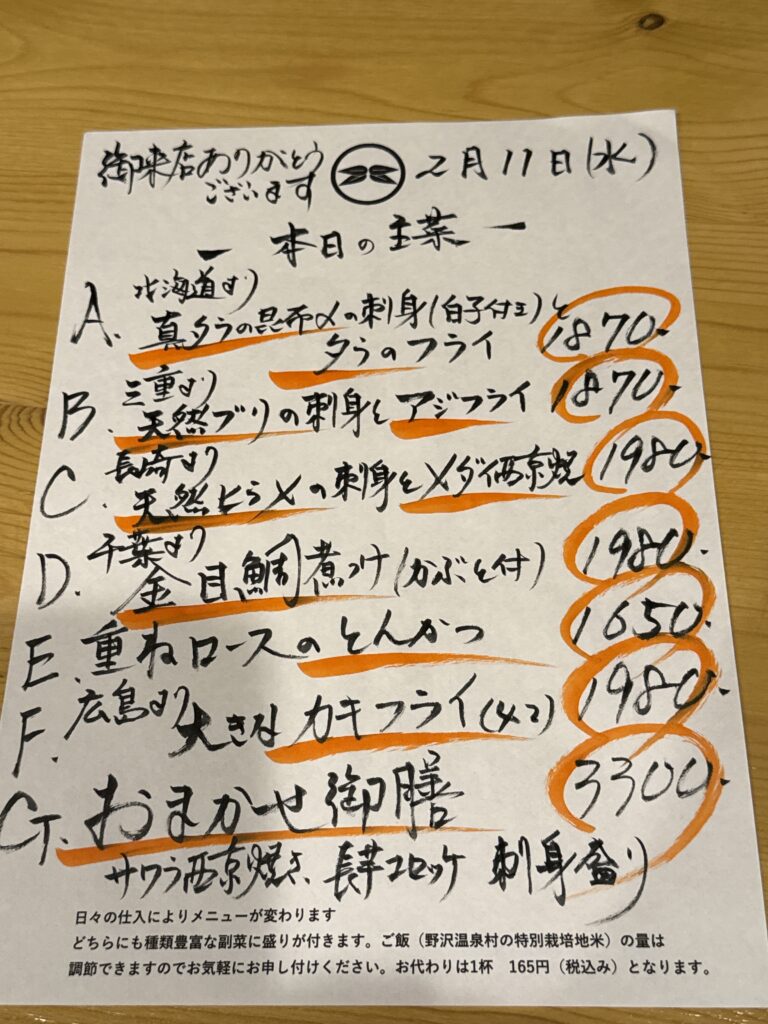 御来店ありがとう
ございます
2月11日(水)
ー 本日の主菜 ー
A. 北海道より
真タラの昆布〆の刺身(白子付き)と
タラのフライ
1870-
B. 三重より
天然ブリの刺身とアジフライ
1870-
C. 長崎より
天然ヒラメの刺身とメダイ西京焼
1980-
D. 千葉より
金目鯛煮つけ(かぶと付)
1980-
E. 重ねロースのとんかつ
1650-
F. 広島より
大きなカキフライ(4コ)
1980-
G. おまかせ御膳
3300-
サワラ西京焼き、長芋コロッケ 刺身盛り
日々の仕入によりメニューが変わります
どちらにも種類豊富な副菜に盛りが付きます。ご飯(野沢温泉村の特別栽培地米)の量は
調節できますのでお気軽にお申し付けください。お代わりは1杯 165円(税込み)となります。